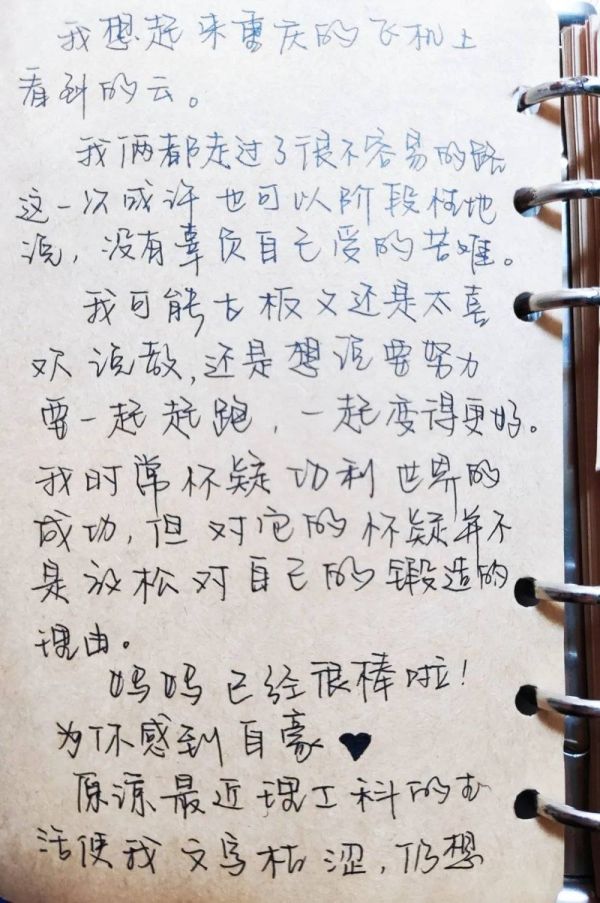 我想起来重庆的飞机上
看到的云。
我俩都走过了很不容易的路
这一次或许也可以阶段性地
说，没有辜负自己受的苦难。
我可能古板又还是太喜
欢说教，还是想说要努力
要一起起跑，一起变得更好。
我时常怀疑功利世界的
成功，但对它的怀疑并不
是放松对自己的锻造的
理由。
妈妈已经很棒啦！
为你感到自豪♥
原谅最近理工科的生
活使我文字枯涩，仍想